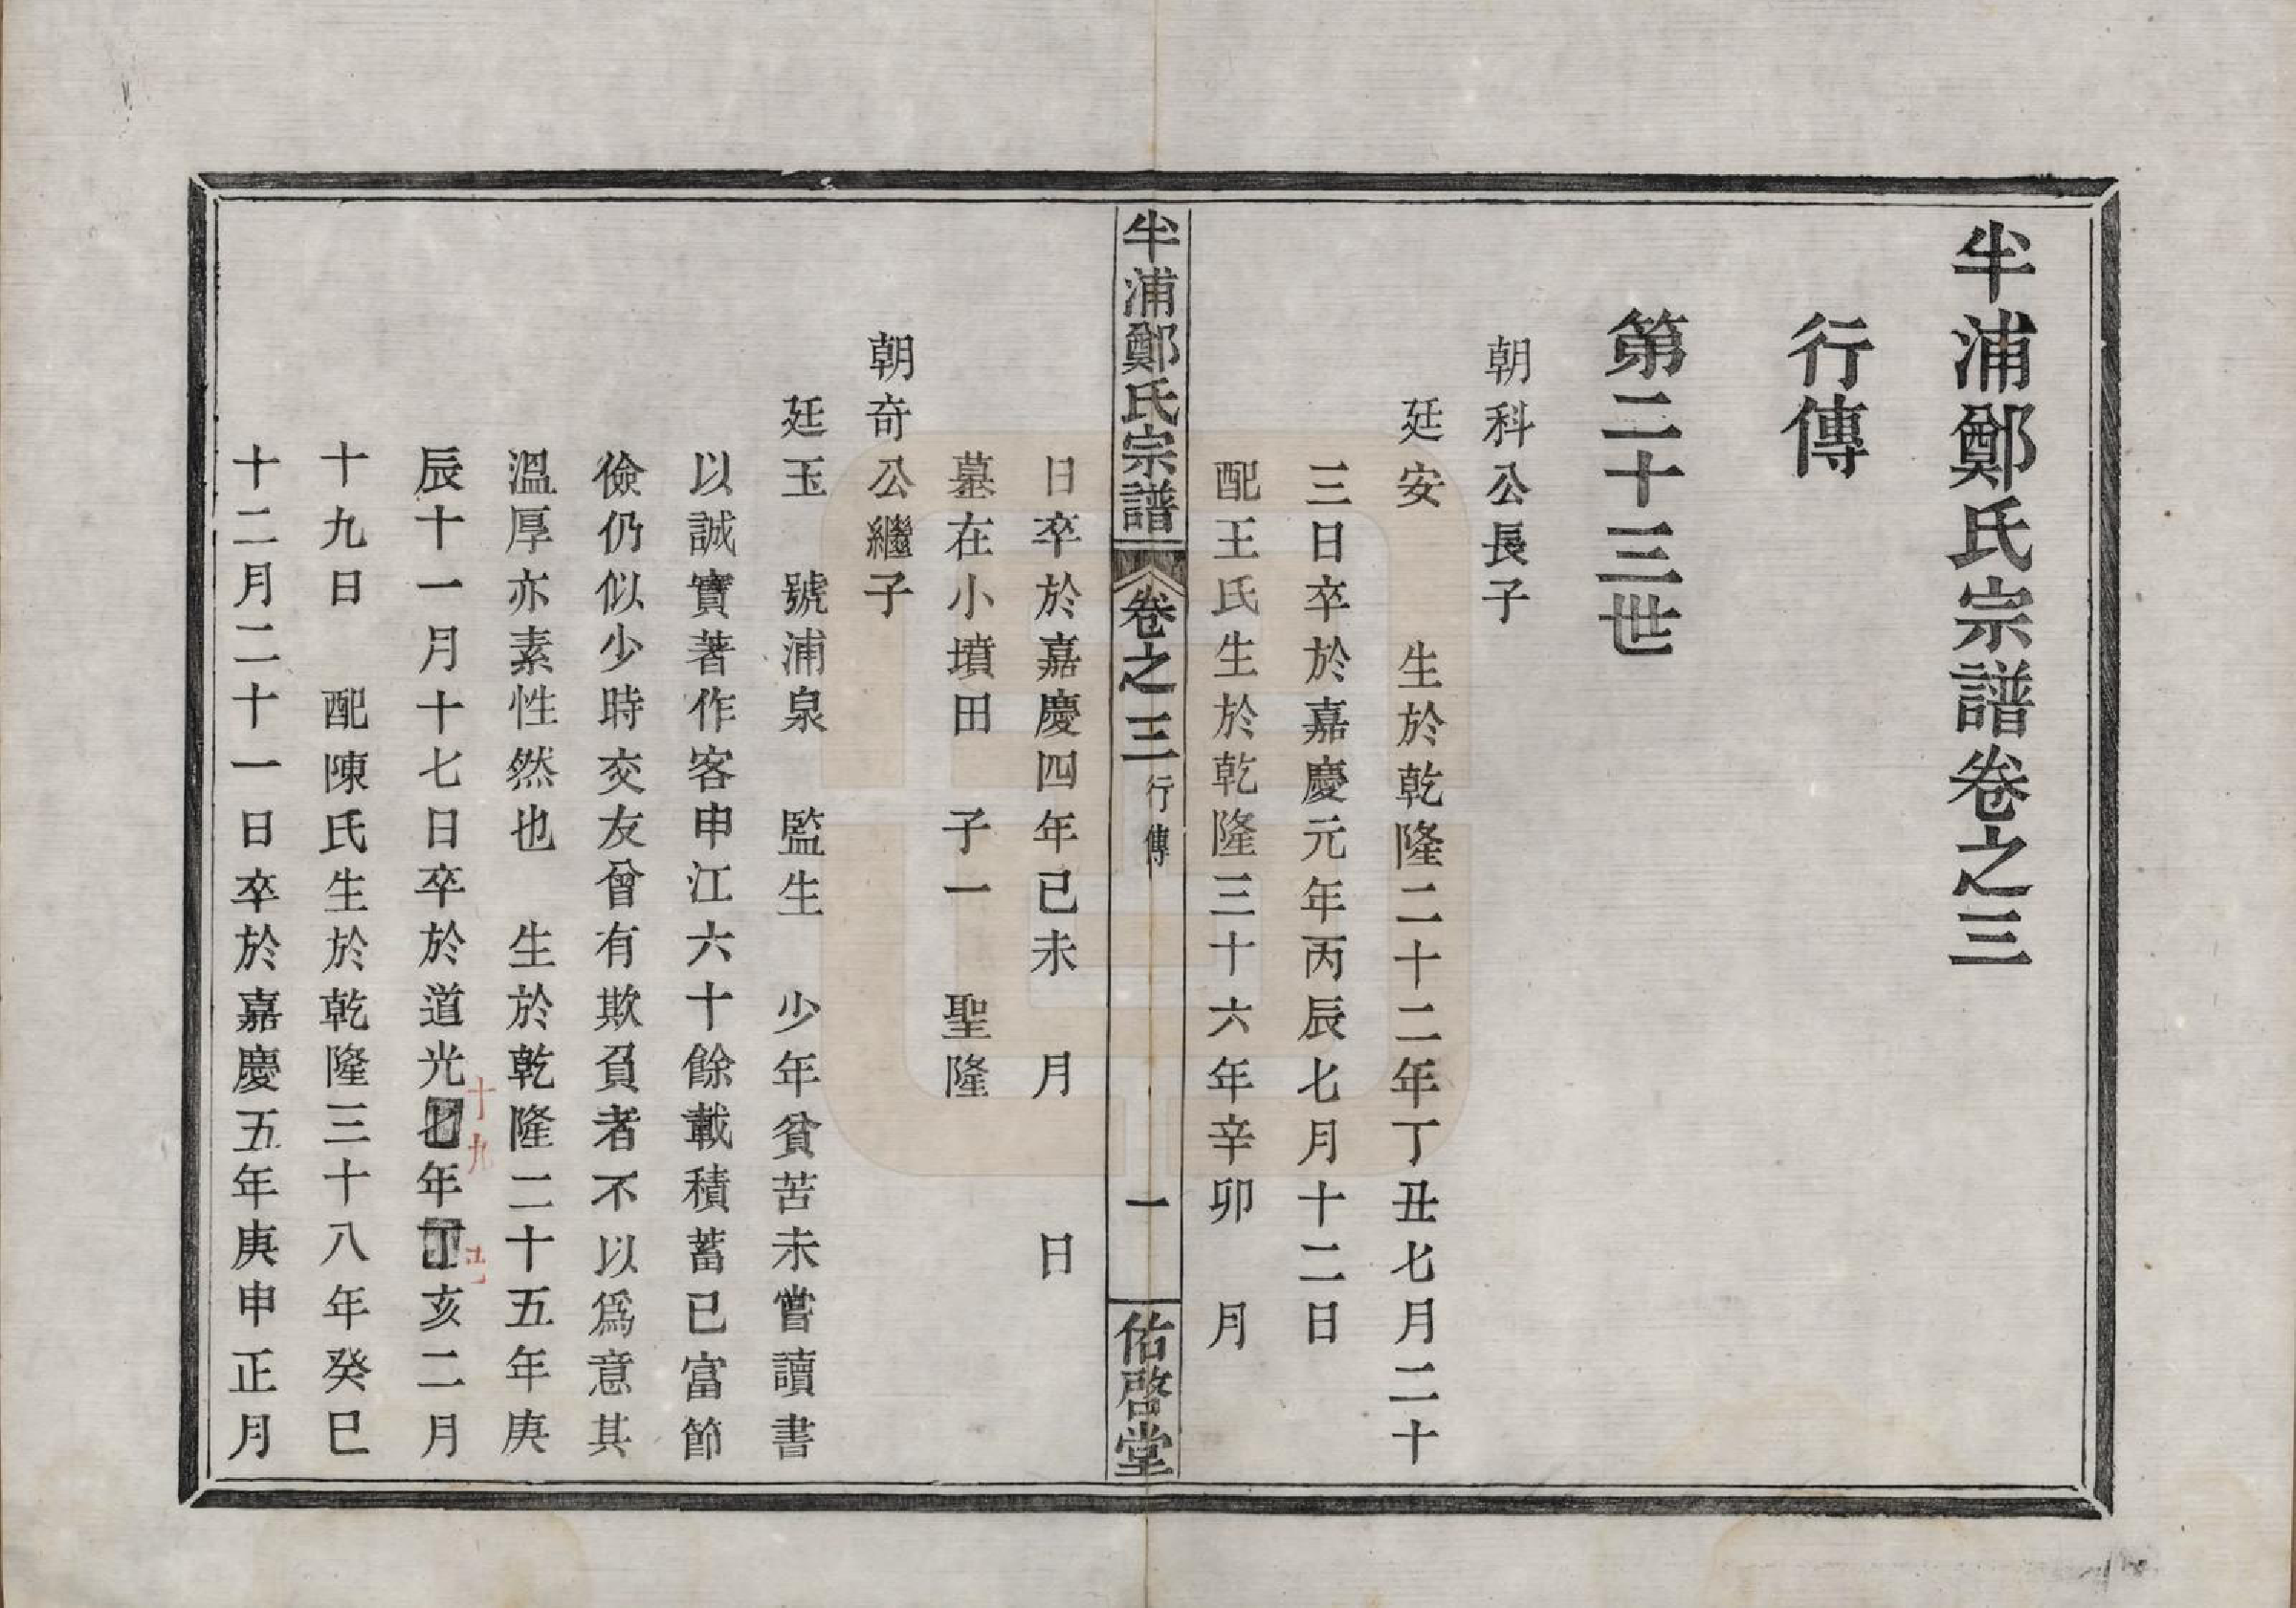 半浦鄭氏宗譜卷之三
行傳
第二十三世
朝科公長子
廷安　生於乾隆二十二年丁丑七月二十
三日卒於嘉慶元年丙辰七月十二日
配王氏生於乾隆三十六年辛卯　月
半浦鄭氏宗譜　卷之三　行傳　一　佑啓堂
日卒於嘉慶四年已未　月　日
墓在小墳田　子一　聖隆
朝奇公繼子
廷玉　號浦泉　監生　少年貧苦未嘗讀書
以誠實著作客申江六十餘載積蓄已富節
儉仍似少時交友曾有欺負者不以爲意其
溫厚亦素性然也　生於乾隆二十五年庚
辰十一月十七日卒於道光七年丁亥二月
十九
己
十九日　配陳氏生於乾隆三十八年癸巳
十二月二十一日卒於嘉慶五年庚申正月